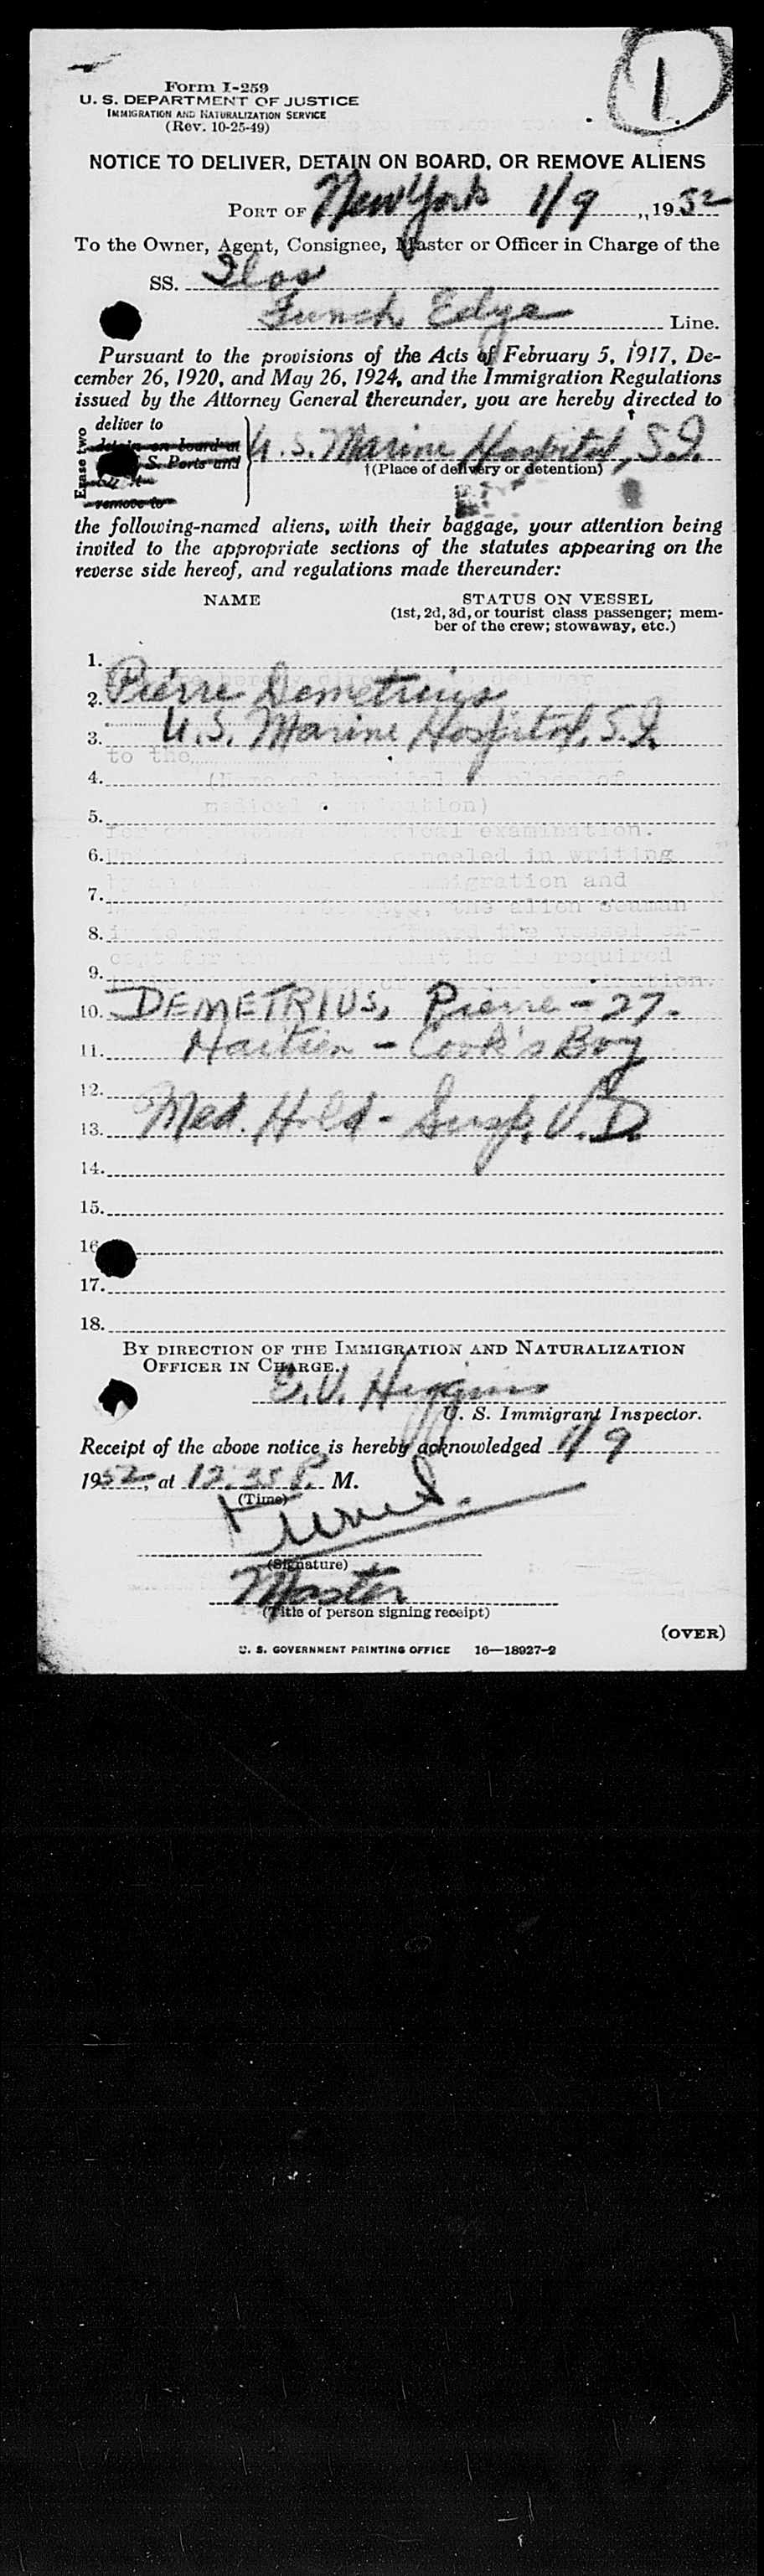 1.
Form I-259
U. S. DEPARTMENT OF JUSTICE
IMMIGRATION AND NATURALIZATION SERVICE
(Rev. 10-25-49)
NOTICE TO DELIVER, DETAIN ON BOARD, OR REMOVE ALIENS
PORT OF New York 1/9, 1952
To the Owner, Agent, Consignee, Master or Officer in Charge of the
SS.
Funch Edye Line.
Pursuant to the provisions of the Acts of February 5, 1917, De-
cember 26, 1920, and May 26, 1924, and the Immigration Regulations
issued by the Attorney General thereunder, you are hereby directed to
Erase two
deliver to
detain on board at
S. Ports and
remove to
U.S. Marine Hospital, S.I.
†(Place of delivery or detention)
the following-named aliens, with their baggage, your attention being
invited to the appropriate sections of the statutes appearing on the
reverse side hereof, and regulations made thereunder:
NAME STATUS ON VESSEL
(1st, 2d, 3d, or tourist class passenger; mem-
ber of the crew; stowaway, etc.)
1.
2. Pierre Demetrius
3. U.S. Marine Hospital, S.I.
4.
5.
6.
7.
8.
9.
10. DEMETRIUS, Pierre - 27.
11. Haitien - Cook's Boy
12.
13. Med. Hold - Susp. V.D.
14.
15.
16
17.
18.
BY DIRECTION OF THE IMMIGRATION AND NATURALIZATION
OFFICER IN CHARGE.
E.V. Higgins
U. S. Immigrant Inspector.
Receipt of the above notice is hereby acknowledged 1/9
1952, at 12.25 P. M.
(Time)
(Signature)
Master
(Title of person signing receipt)
(OVER)
U. S. GOVERNMENT PRINTING OFFICE 16—18927-2